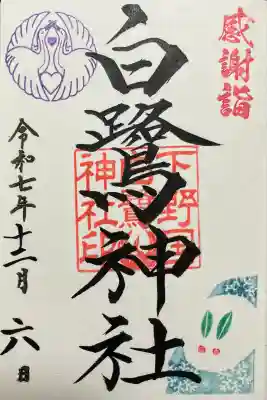 感謝詣
白鷺神社
下野国
神社印
令和七年十二月六日